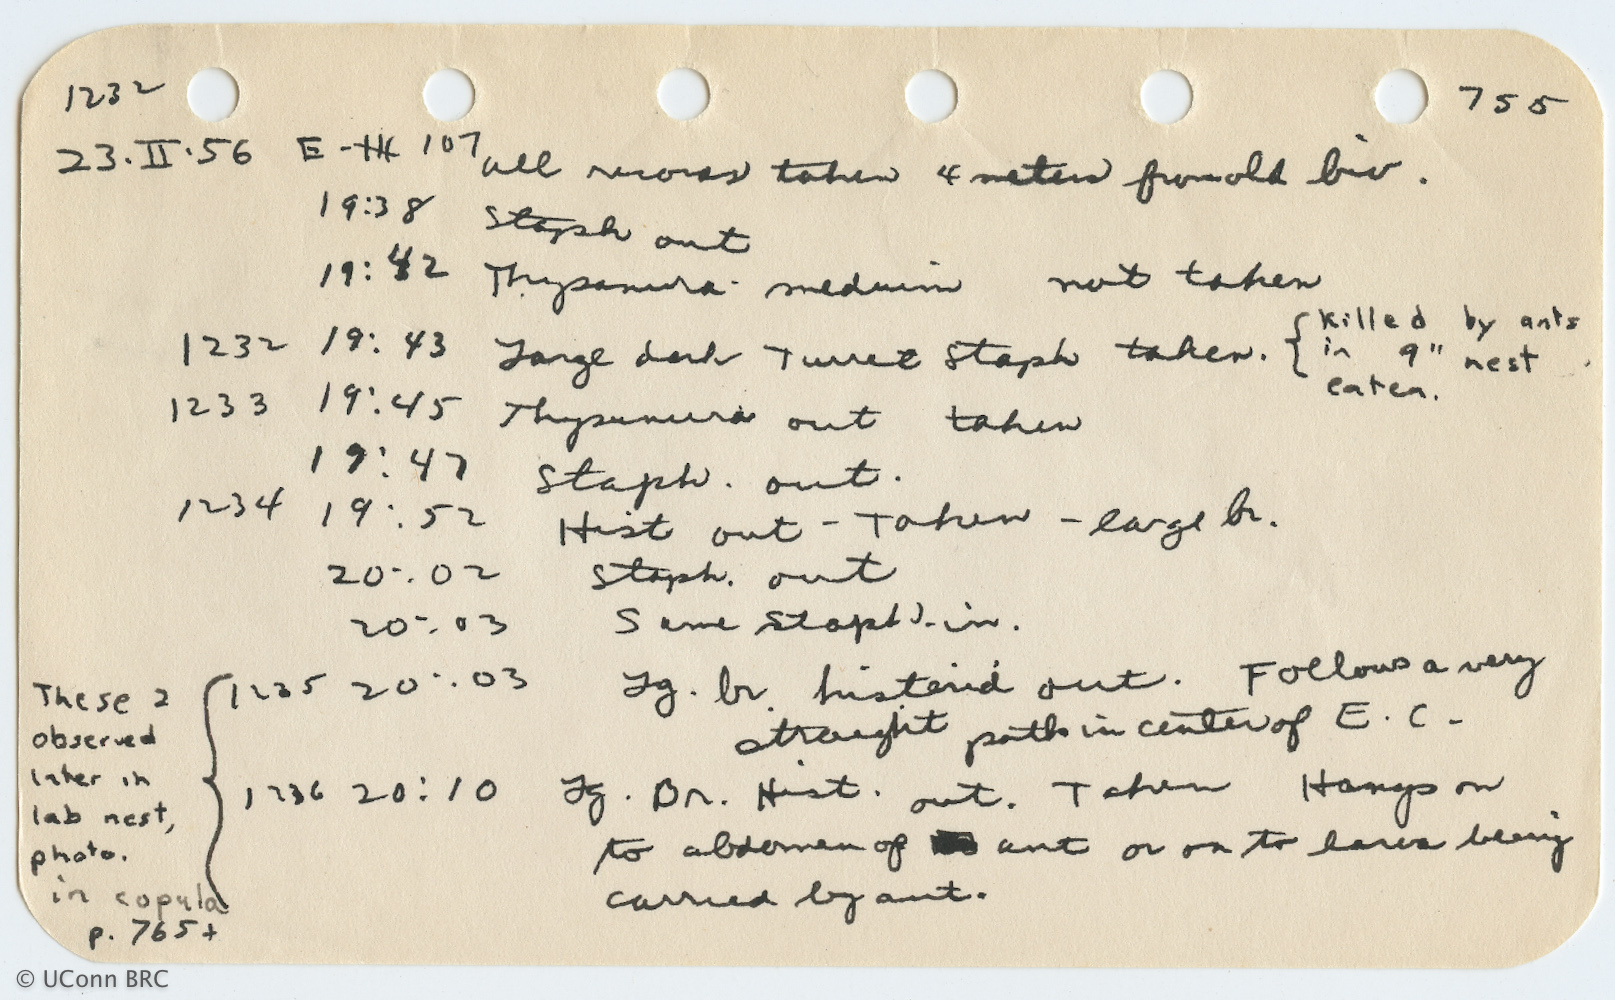 1232 755
23.II.56 E-HK 107 all records taken 4 meters from old biv.
19:38 Staph out
19:42 Thysanura - medium not taken
1232 19:43 Large dark Turret Staph taken. { Killed by ants
in 9" nest
eaten.
1233 19:45 Thysanura out taken
19:47 Staph. out.
1234 19:52 Hist out - Taken - large br.
20:02 Staph. out
20:03 Same Staph. in.
1235 20:03 Lg. br. histerid out. Follows a very
straight path in center of E.C.
1236 20:10 Lg. Br. Hist. out. Taken Hangs on
to abdomen of ant or on to larva being
carried by ant.
These 2
observed
later in
lab nest,
photo.
in copula
p. 765+
© UConn BRC